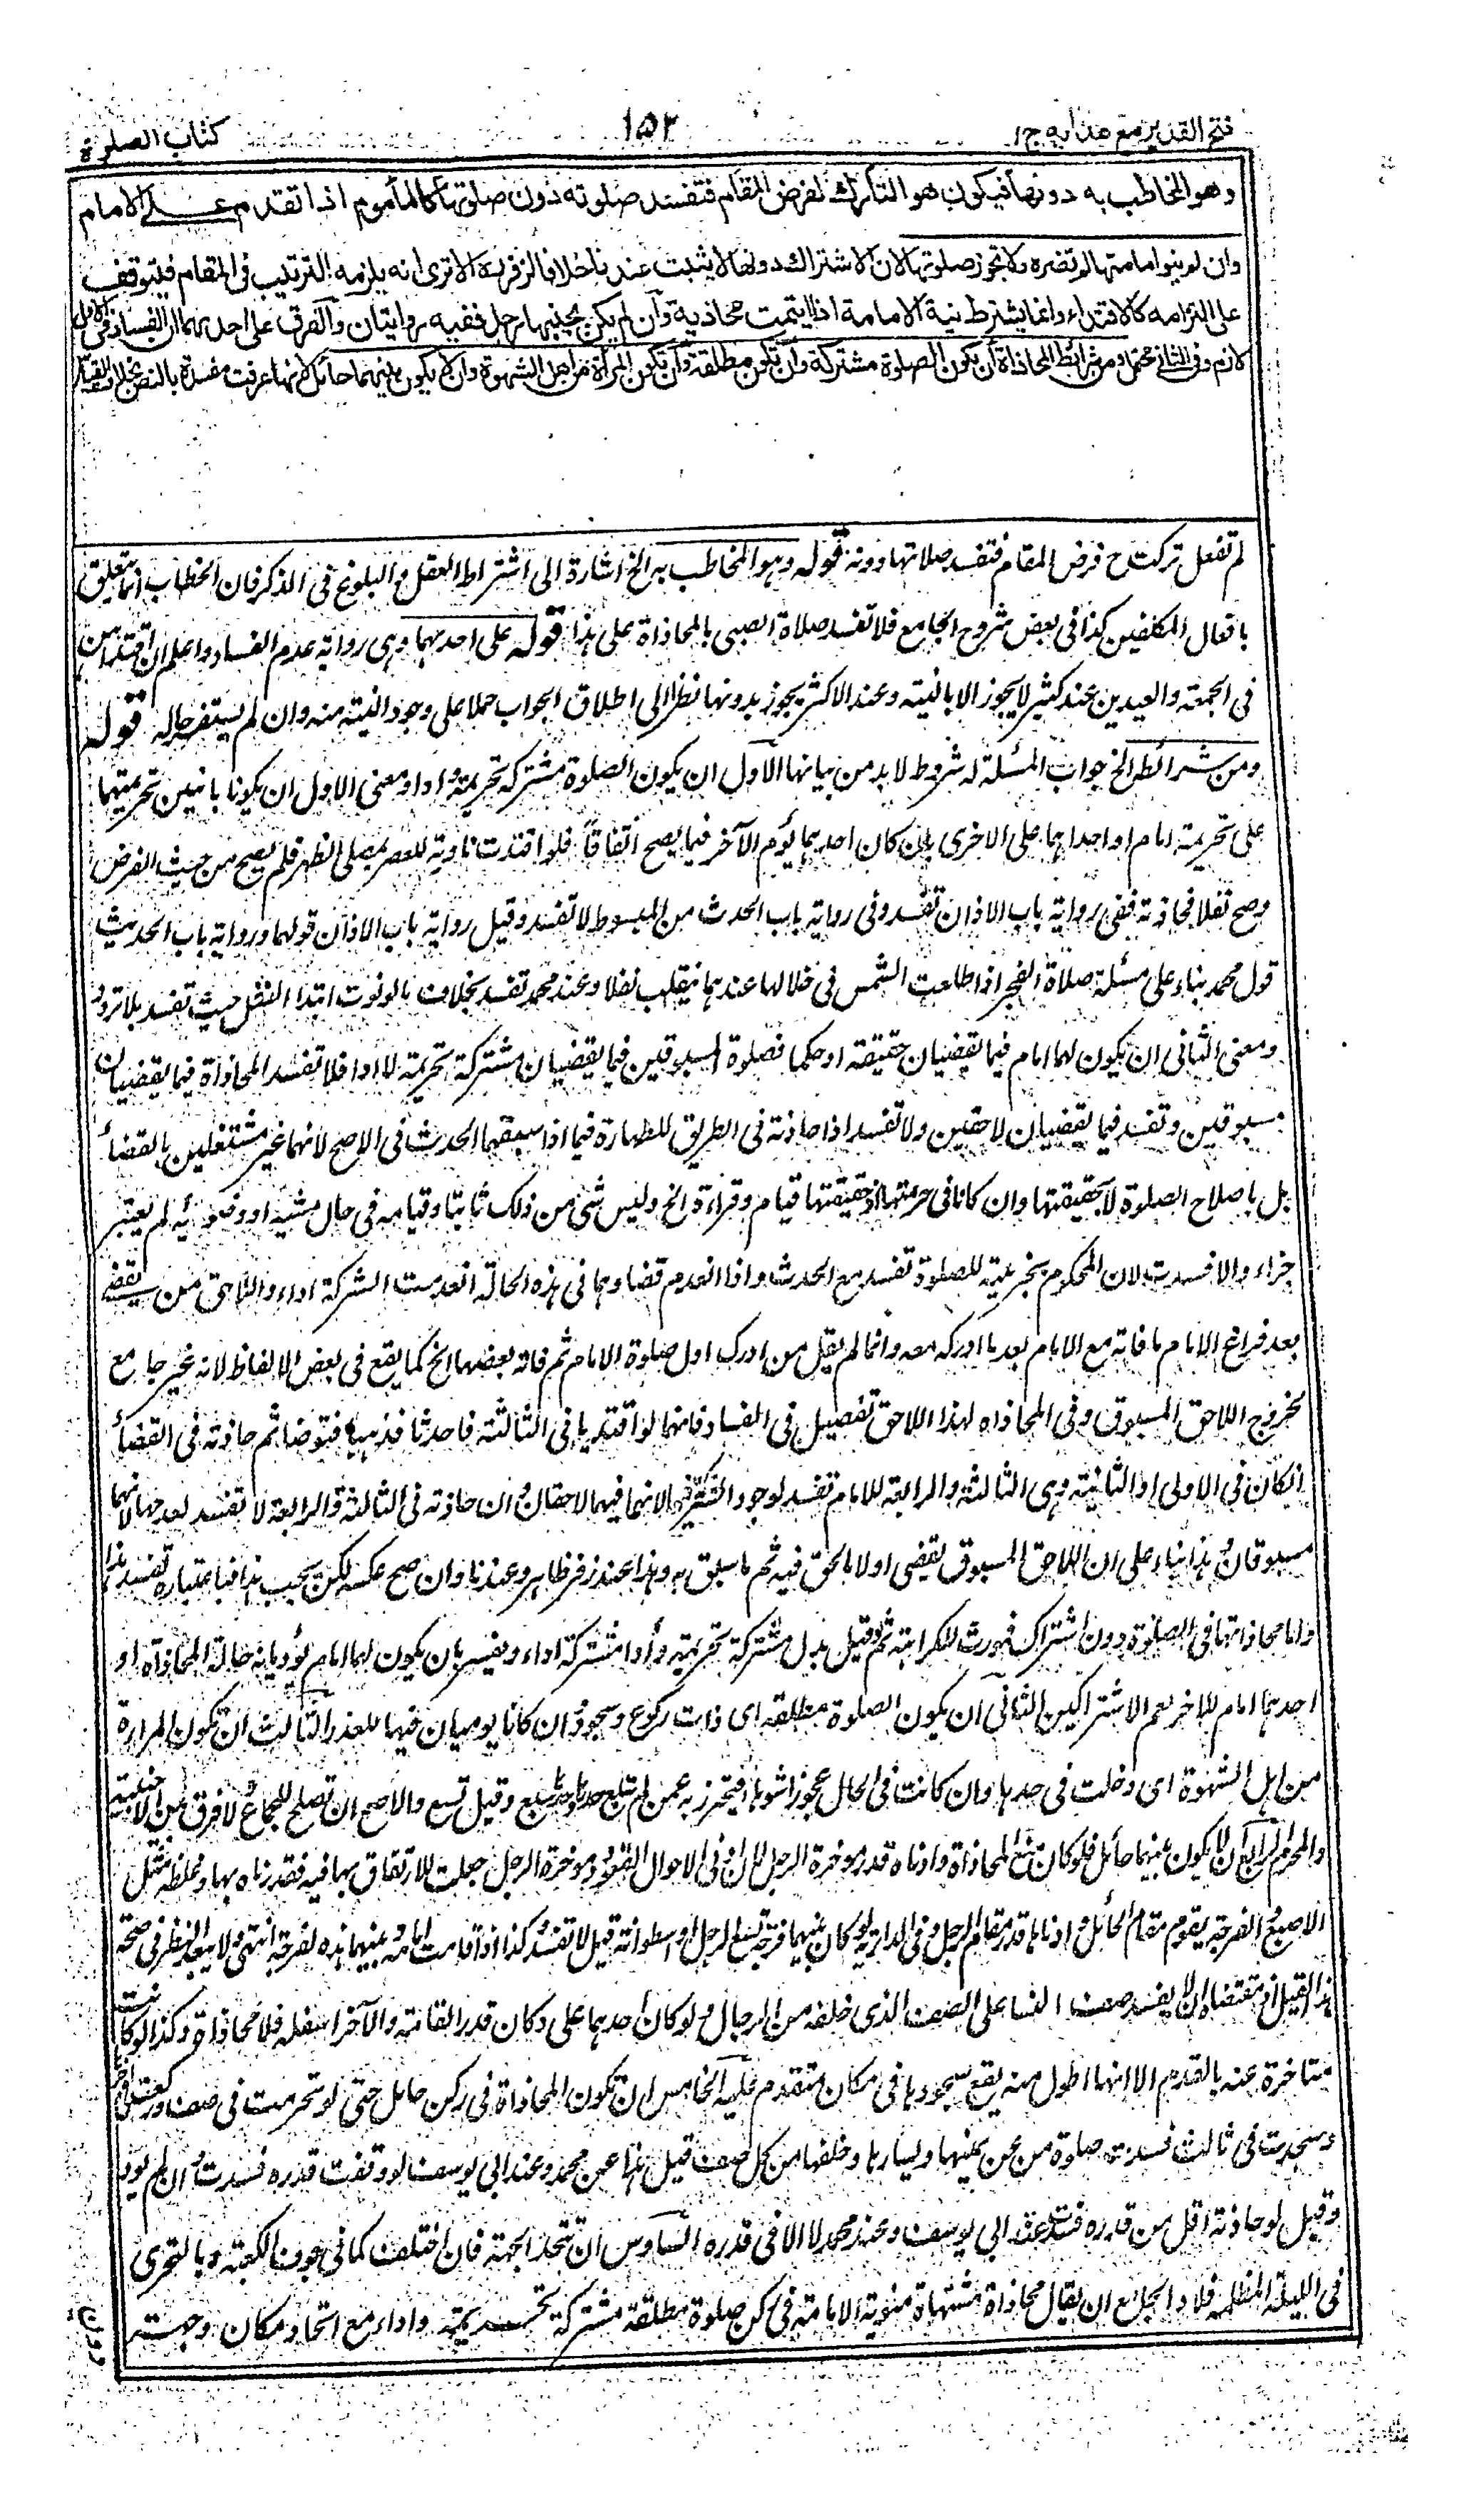 فتح القدير مع هدايه ج ١
١٥٣
كتاب الصلوة
وهو المخاطب به دونها فيكون هو التارك لفرض المقام فتفسد صلوته دون صلوتها كالمأموم اذا تقدم على الامام
وان لم ينو امامتها لم تضره ولا تجوز صلوتها لان الاشتراك دونها لا يثبت عندنا خلافا لزفر رح الا ترى انه يلزمه الترتيب فى المقام فيتوقف
على التزامه كالاقتداء وانما يشترط نية الامامة اذا ايتمت محاذية وان لم يكن بجنبها رجل ففيه روايتان والفرق على احدهما ان الفساد فى الاول
لازم وفى الثانى محتمل ومن شرائط المحاذاة ان يكون الصلوة مشتركة وان تكون مطلقة وان تكون المرأة من اهل الشهوة وان لا يكون بينهما حائل لانها عرفت مفسدة بالنص بخلاف القياس
لم تفعل تركت ح فرض المقام فتفسد صلاتها دونه قوله وهو المخاطب به الخ اشارة الى اشتراط العقل والبلوغ فى الذكر فان الخطاب انما يتعلق
بافعال المكلفين كذا فى بعض شروح الجامع فلا تفسد صلاة الصبى بالمحاذاة على هذا قوله على احدهما وهى رواية عدم الفساد واعلم ان اقتداءهن
فى الجمعة والعيدين عند كثير لا يجوز الا بالنية وعند الاكثر يجوز بدونها نظرا الى اطلاق الجواب حملا على وجود النية منه وان لم يستفسر حاله قوله
ومن شرائطه الخ جواب المسئلة له شروط لا بد من بيانها الاول ان يكون الصلوة مشتركة تحريمة واداء ومعنى الاول ان يكونا بانيين تحريمتهما
على تحريمة امام او احداهما على الاخرى بان كان احدهما يؤم الآخر فيما يصح اتفاقا فلو اقتدت ناوية للعصر بمصلى الظهر فلم يصح من حيث الفرض
وصح نفلا فحاذته ففى رواية باب الاذان تفسد وفى رواية باب الحدث من المبسوط لا تفسد وقيل رواية باب الاذان قولهما ورواية باب الحديث
قول محمد بناء على مسئلة صلاة الفجر اذا طلعت الشمس فى خلالها عندهما ينقلب نفلا وعند محمد تفسد بخلاف ما لو نوت ابتداء النفل حيث تفسد بلا تردد
ومعنى الثانى ان يكون لهما امام فيما يقضيان حقيقة او حكما فصلوة المسبوقين فيما يقضيان مشتركة تحريمة لا اداء فلا تفسد المحاذاة فيما يقضيان
مسبوقين وتفسد فيما يقضيان لاحقين ولا تفسد اذا حاذته فى الطريق للطهارة فيما اذا سبقهما الحدث فى الاصح لانهما غير مشتغلين بالقضاء
بل باصلاح الصلوة لا بحقيقتها وان كانا فى حرمتها اذ حقيقتها قيام وقراءة الخ وليس شئ من ذلك ثابتا وقيامه فى حال مشيه او وضوئه لم يعتبر
جزاء والا فسدت لان المحكوم بجزئيته للصلوة تفسد مع الحدث واذا انعدم قضاؤهما فى هذه الحالة انعدمت الشركة اداء واللاحق من يقضى
بعد فراغ الامام ما فاته مع الامام بعد ما ادركه معه وانما لم يقل من ادرك اول صلوة الامام ثم فاته بعضها الخ كما يقع فى بعض الالفاظ لانه غير جامع
لخروج اللاحق المسبوق وفى المحاذاه لهذا اللاحق تفصيل فى الفساد فانهما لو اقتديا فى الثالثة فاحدثا فذهبا فتوضئا ثم حاذته فى القضاء
ان كان فى الاولى او الثانية وهى الثالثة والرابعة للامام تفسد لوجود الشركة فيهما لانهما فيهما لاحقان وان حاذته فى الثالثة والرابعة لا تفسد لعدمها لانهما
مسبوقان وهذا بناء على ان اللاحق المسبوق يقضى اولا ما لحق فيه ثم ما سبق به وهذا عند زفر ظاهر وعندنا وان صح عكسه لكن يجب هذا فباعتباره تفسد هذا
واما محاذاتها فى الصلوة دون اشتراك فمورث للكراهة ثم لو قيل بدل مشتركة تحريمة وأداء مشتركة اداء ويفسر بان يكون لهما امام يؤديانه حالة المحاذاة او
احدهما امام للاخر لعم الاشتراكين الثانى ان يكون الصلوة مطلقة اى ذات ركوع وسجود وان كانا يوميان فيها للعذر الثالث ان تكون المراة
من اهل الشهوة اى دخلت فى حدها وان كانت فى الحال عجوزا شوهاء فيحترز به عمن لم تبلغ حدها وحده سبع وقيل تسع والاصح ان تصلح للجماع ولا فرق بين الاجنبية
والمحرم الرابع ان لا يكون بينهما حائل فلو كان منع المحاذاة وادناه قدر موخرة الرحل لان ادنى الاحوال القعود وموخرة الرحل جعلت للارتفاق بها فيه فقدرناه بها وغلظه مثل
الاصبع والفرجة يقوم مقام الحائل وادناها قدر مقام الرجل وفى الدراية لو كان بينهما فرجة تسع الرجل او اسطوانة قيل لا تفسد وكذا اذا قامت امامه وبينهما هذه الفرجة انتهى ولا يبعد النظر فى صحة
هذا القيل اذ مقتضاه ان لا يفسد صف النساء على الصف الذى خلفه من الرجال ولو كان احدهما على دكان قدر القامة والآخر اسفله فلا محاذاة وكذا لو كانت
متاخرة عنه بالقدم الا انها اطول منه يقع سجودها فى مكان متقدم عليه الخامس ان تكون المحاذاة فى ركن كامل حتى لو تحرمت فى صف وركعت فى آخر
وسجدت فى ثالث فسدت صلوة من عن يمينها ويسارها وخلفها من كل صف قيل هذا عن محمد وعند ابى يوسف لو وقفت قدره فسدت وان لم يؤد
وقيل لو حاذته اقل من قدره فسدت عند ابى يوسف وعند محمد لا الا فى قدره السادس ان تتحد الجهة فان اختلفت كما فى جوف الكعبة وبالتحرى
فى الليلة المظلمة فلا والجامع ان يقال محاذاة مشتهاة منوية الامامة فى ركن صلوة مطلقة مشتركة تحريمة واداء مع اتحاد مكان وجهة